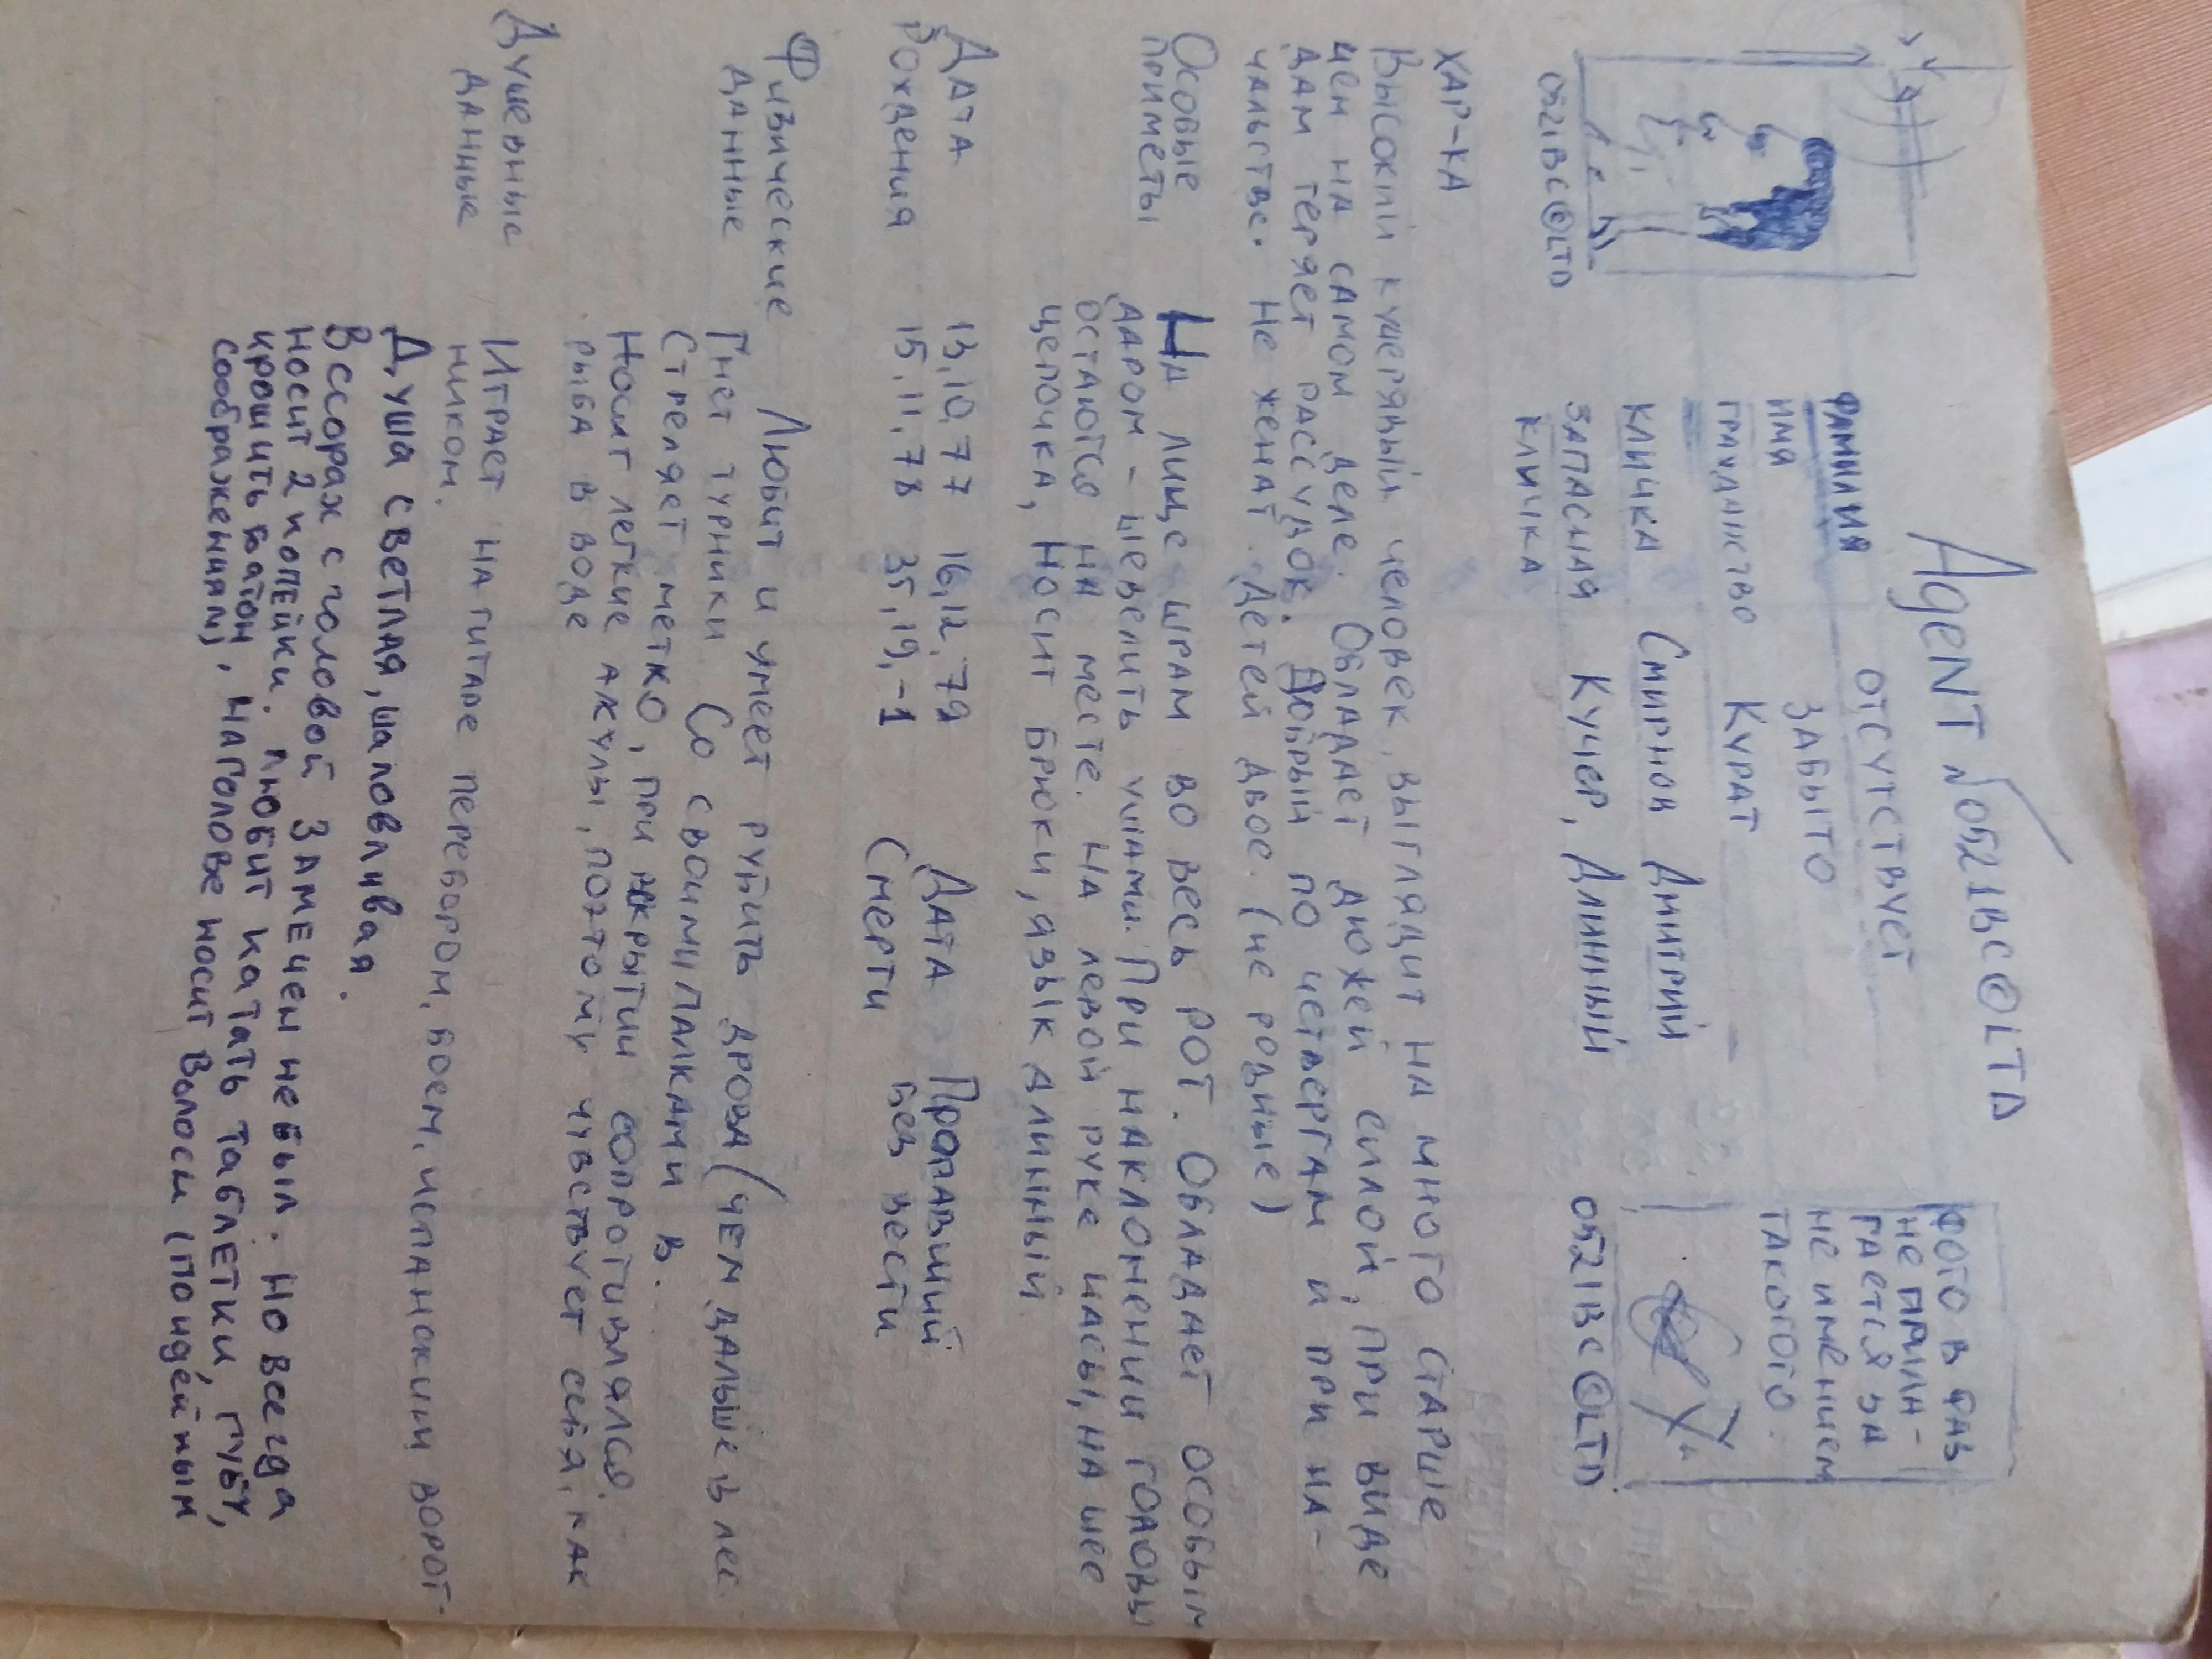 Agent №0521BC@LTD
ФАМИЛИЯ ОТСУТСТВУЕТ
ИМЯ ЗАБЫТО
ГРАЖДАНСТВО КУРАТ
КЛИЧКА Смирнов Дмитрий
ЗАПАСНАЯ КЛИЧКА Кучер, Длинный
0521BC@LTD
ФОТО В ФАС
НЕ ПРИЛА-
ГАЕТСЯ ЗА
НЕ ИМЕНИЕМ
ТАКОГО.
0521BC@LTD.
ХАР-КА
Высокий кучерявый человек, выглядит на много старше
чем на самом деле. Обладает дюжей силой, при виде
дам теряет рассудок. Добрый по четвергам и при на-
чальстве. Не женат. Детей двое. (не родные)
Особые приметы
На лице шрам во весь рот. Обладает особым
даром - шевелить ушами. При наклонении головы
остаются на месте. На левой руке часы, на шее
цепочка, Носит брюки, язык длинный.
Дата Рождения
13,10,77 16,12,79
15,11,78 35,19,-1
Дата Смерти
Пропавший
без вести
Физические данные
Любит и умеет рубить дрова (чем дальше в лес.
Гнет турники. Со своими палками в.
Стреляет метко, при вскрытии сопротивлялся.
Носит легкие акулы, поэтому чувствует себя, как
рыба в воде
Душевные данные
Играет на гитаре перебором, боем, испанским ворот-
ником.
Душа светлая, шаловливая.
В ссорах с головой замечен не был. Но всегда
носит 2 копейки. Любит катать таблетки, губу,
крошить батон, на голове носит волосы (по идейным
соображениям)